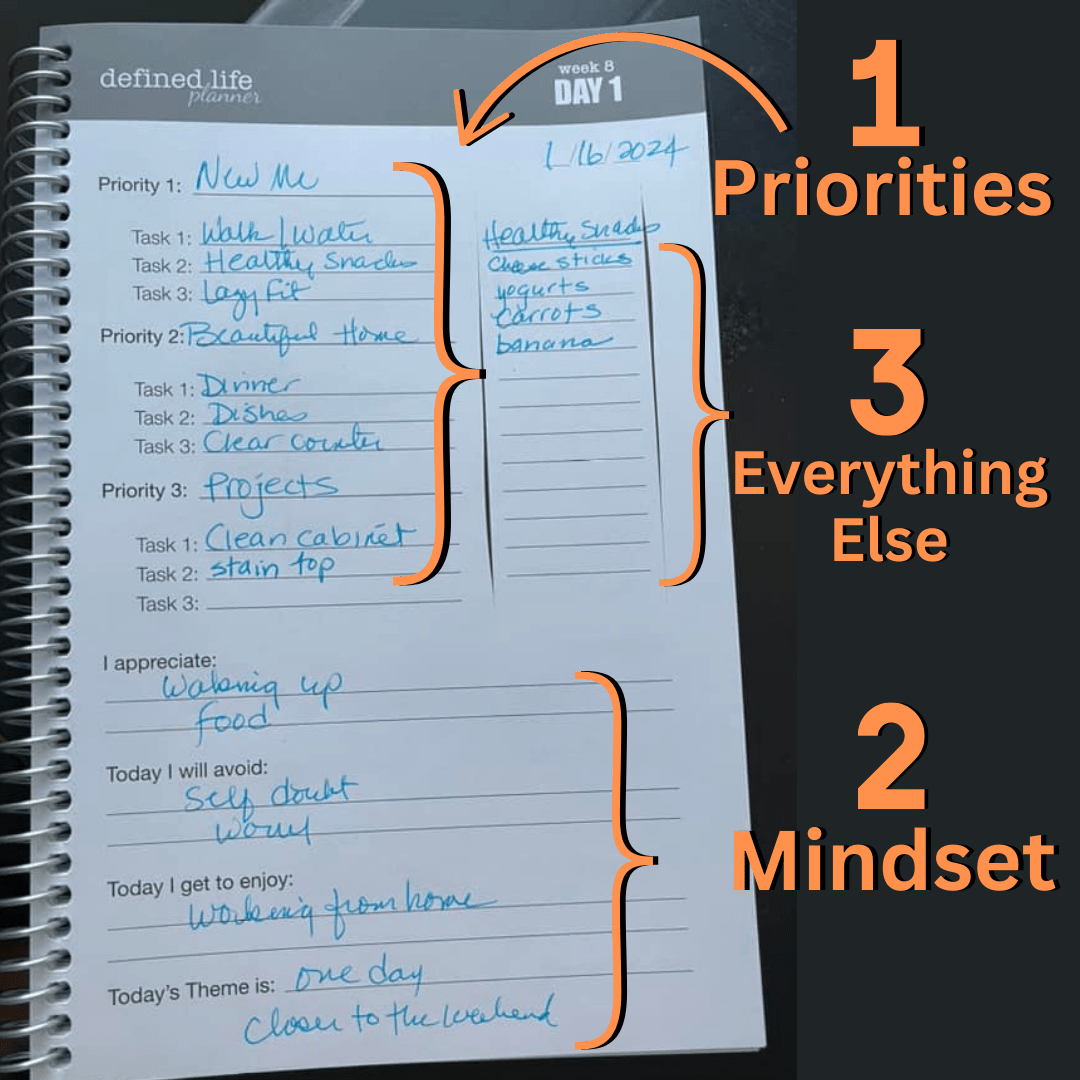 defined life
planner
week 8
DAY 1
1/16/2024
Priority 1: New Me
Task 1: Walk | Water
Task 2: Healthy Snacks
Task 3: Lazy Fit
Priority 2: Beautiful Home
Task 1: Dinner
Task 2: Dishes
Task 3: Clear counter
Priority 3: Projects
Task 1: Clean cabinet
Task 2: stain top
Task 3:
Healthy Snacks
Cheese sticks
yogurts
carrots
banana
I appreciate:
Waking up
food
Today I will avoid:
Self doubt
worry
Today I get to enjoy:
Working from home
Today's Theme is: one day
closer to the weekend
1
Priorities
3
Everything
Else
2
Mindset